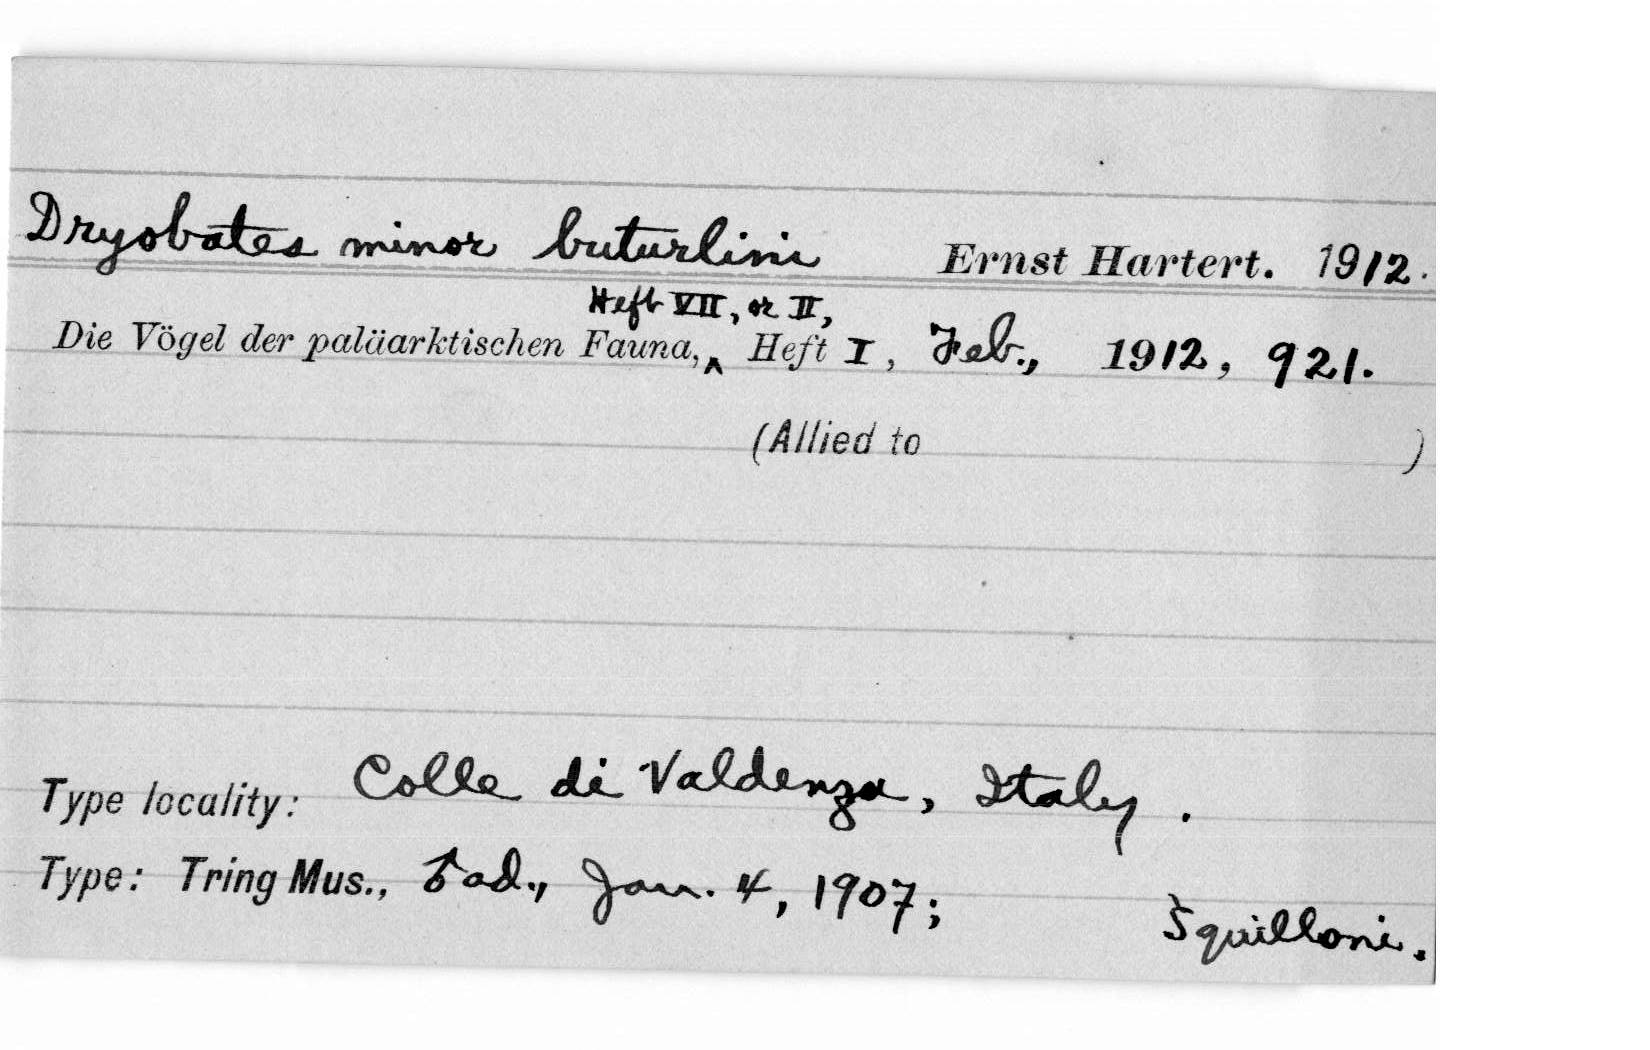 Dryobates minor buturlini Ernst Hartert. 1912.
Heft VII, or II,
Die Vögel der paläarktischen Fauna,‸ Heft I, Feb., 1912, 921.
(Allied to )
Type locality: Colle di Valdenza, Italy.
Type: Tring Mus., ♂ ad., Jan. 4, 1907; Squilloni.